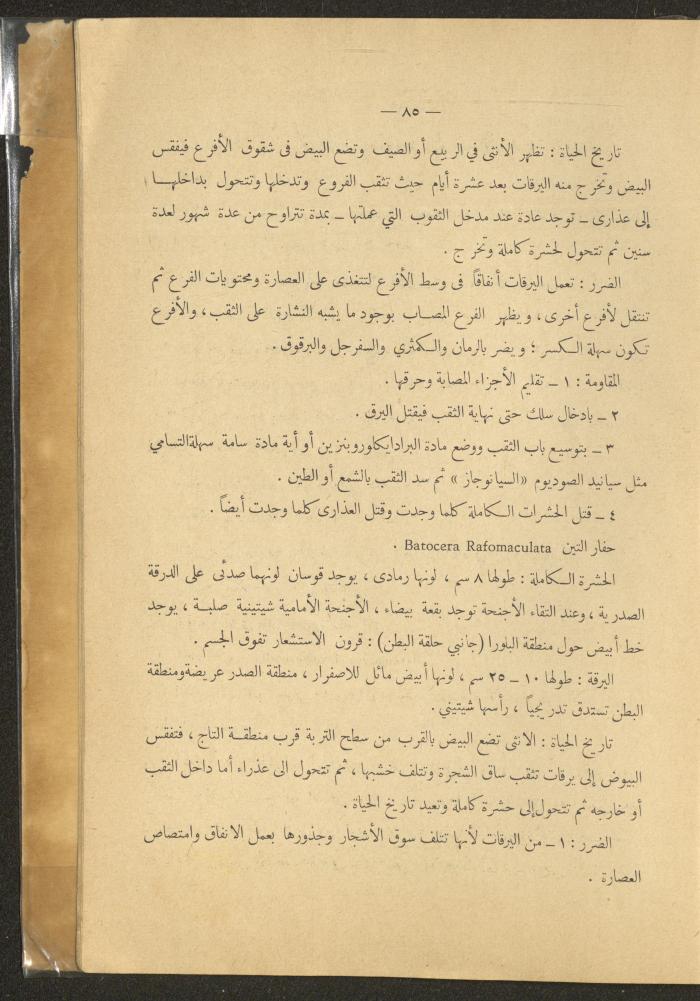 — ٨٥ —
تاريخ الحياة : تظهر الأنثى في الربيع أو الصيف وتضع البيض فى شقوق الأفرع فيفقس
البيض وتخرج منه اليرقات بعد عشرة أيام حيث تثقب الفروع وتدخلها وتتحول بداخلهـا
إلى عذارى ــ توجد عادة عند مدخل الثقوب التي عملتها ــ بمدة تتراوح من عدة شهور لعدة
سنين ثم تتحول لحشرة كاملة وتخرج .
الضرر : تعمل اليرقات أنفاقاً فى وسط الأفرع لتتغذى على العصارة ومحتويات الفرع ثم
تنتقل لأفرع أخرى ، ويظهر الفرع المصـاب بوجود ما يشبه النشارة على الثقب ، والأفرع
تكون سهلة الـكسر ؛ ويضر بالرمان والـكمثري والسفرجل والبرقوق .
المقاومة : ١ ــ تقليم الأجزاء المصابة وحرقها .
٢ ــ بادخال سلك حتى نهاية الثقب فيقتل اليرق .
٣ ــ بتوسيع باب الثقب ووضع مادة البرادايكلوروبنزين أو أية مادة سامة سهلةالتسامي
مثل سيانيد الصوديوم «السيانوجاز» ثم سد الثقب بالشمع أو الطين .
٤ ــ قتل الحشرات الـكاملة كلما وجدت وقتل العذارى كلما وجدت أيضاً .
حفار التين Batocera Rafomaculata .
الحشرة الـكاملة : طولها ٨ سم ، لونها رمادى ، يوجد قوسان لونهما صدئى على الدرقة
الصدرية ، وعند التقاء الأجنحة توجد بقعة بيضاء ، الأجنحة الأمامية شيتينية صلبـة ، يوجد
خط أبيض حول منطقة البلورا (جانبي حلقة البطن) : قرون الاستشعار تفوق الجسم .
اليرقة : طولها ١٠ ــ ٢٥ سم ، لونها أبيض مائل للاصفرار ، منطقة الصدر عريضةومنطقة
البطن تستدق تدريجياً ، رأسها شيتيني .
تاريخ الحياة : الانثى تضع البيض بالقرب من سطح التربة قرب منطقـة التاج ، فتفقس
البيوض إلى يرقات تثقب ساق الشجرة وتتلف خشبها ، ثم تتحول الى عذراء أما داخل الثقب
أو خارجه ثم تتحول إلى حشرة كاملة وتعيد تاريخ الحياة .
الضرر : ١ ــ من اليرقات لأنها تتلف سوق الأشجار وجذورها بعمل الانفاق وامتصاص
العصارة .